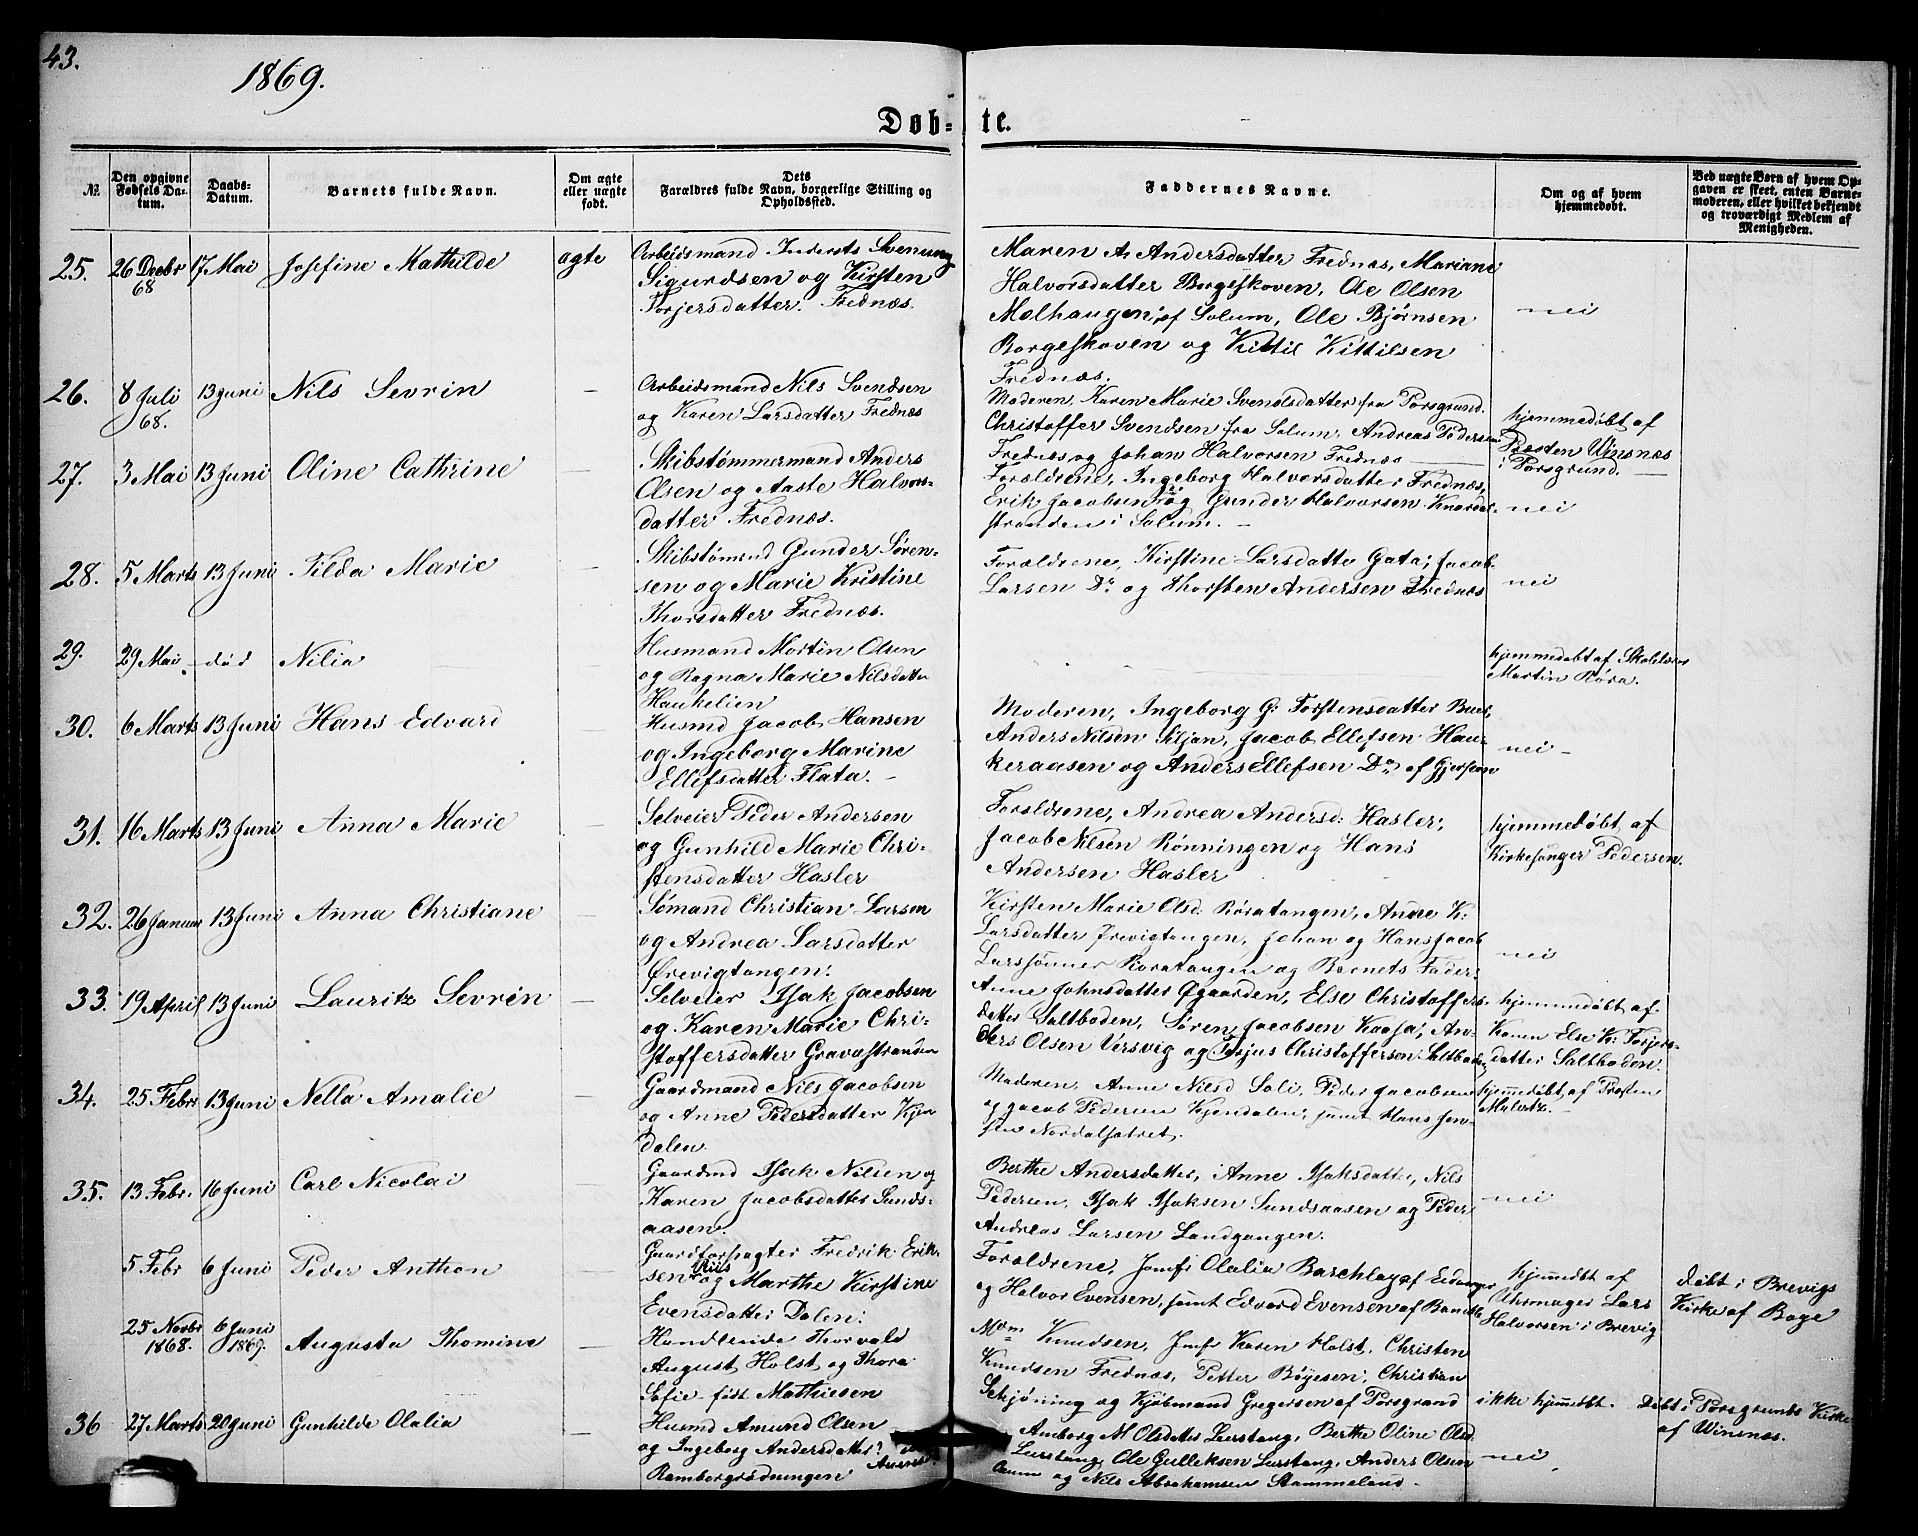 43.
1869.
Døb-te.
№
Den opgivne Fødsels Datum.
Daabs-Datum.
Barnets fulde Navn.
Om ægte eller uægte født.
Dets Forældres fulde Navn, borgerlige Stilling og Opholdssted.
Faddernes Navne.
Om og af hvem hjemmedøbt.
Ved uægte Børn af hvem Opgaven er skeet, enten Barnemoderen, eller hvilket bekjendt og troværdigt Medlem af Menigheden.
25. 26 Decbr 68 17 Mai Josefine Mathilde ægte
Arbeidsmand Inderst Svenung
Sigurdsen og Kirsten
Torjersdatter. Frednæs.
Maren A. Andersdatter Frednæs, Mariane
Halvorsdatter Borgeskoven, Ole Olsen
Molhaugen, af Solum, Ole Bjørnsen
Borgeskoven og Kittil Kittilsen
Frednæs.
nei
26. 8 Juli 68. 13 Juni Nils Sevrin —
Arbeidsmand Nils Svendsen
og Karen Larsdatter Frednæs
Moderen, Karen Marie Svendsdatter fra Porsgrund.
Christoffer Svendsen fra Solum, Andreas Pedersen
Frednæs og Johan Halvorsen Frednæs
hjemmedøbt af
Presten Winsnæs
i Porsgrund.
27. 3 Mai 13 Juni Oline Cathrine —
Skibstømmermand Anders
Olsen og Aaste Halvors-
datter Frednæs.
Forældrene, Ingeborg Halvorsdatter Frednæs,
Erik Jacobsen og Gunder Halvorsen Knardal-
stranden i Solum.
nei
28. 5 Marts 13 Juni Tilda Marie —
Skibstømmd Gunder Søren-
sen og Marie Kristine
Thorsdatter Frednæs.
Forældrene, Kirstine Larsdatter Gata, Jacob
Larsen Do og Thorsten Andersen Frednæs
nei
29. 29 Mai død Nilia
Husmand Martin Olsen
og Ragna Marie Nilsdatter
Haukelien
hjemmedøbt af Skolelærer
Martin Røra.
30. 6 Marts 13 Juni Hans Edvard —
Husmd Jacob Hansen
og Ingeborg Marine
Ellefsdatter Flata.
Moderen, Ingeborg G. Torstensdatter
Anders Nilsen Siljan, Jacob Ellefsen Hau-
keraasen og Anders Ellefsen Do af Gjerpen
nei
31. 16 Marts 13 Juni Anna Marie —
Selveier Peder Andersen
og Gunhild Marie Chri-
stensdatter Hasler
Forældrene, Andrea Andersd. Hasler,
Jacob Nilsen Rønningen og Hans
Andersen Hasler
hjemmedøbt af
Kirkesanger Pedersen.
32. 26 Januar 13 Juni Anna Christiane —
Sømand Christian Larsen
og Andrea Larsdatter
Ørevigtangen.
Kirsten Marie Olsd. Røratangen, Andre K.
Larsdatter Ørevigtangen, Johan og Hans Jacob
Larssønner Røratangen og Barnets Fader.
nei
33. 19 April 13 Juni Lauritz Sevrin —
Selveier Isak Jacobsen
og Karen Marie Chri-
stoffersdatter Gravastranden
Anne Johnsdatter Øgaarden, Else Christoffers-
datter Saltboden, Søren Jacobsen Kaasa, An-
ders Olsen Versvig og Terjus Christoffersen Saltboden
hjemmedøbt af
Konen Else K. Torjers-
datter Saltboden.
34. 25 Febr 13 Juni Nella Amalie —
Gaardmand Nils Jacobsen
og Anne Pedersdatter Kjen
dalen.
Moderen, Anne Nilsd Soli, Peder Jacobsen
og Jacob Pedersen Kjendalen, samt Hans Jen-
sen Nordalsætret.
hjemmedøbt af Presten
Malertz.
35. 13 Febr. 16 Juni Carl Nicolai —
Gaardmd Isak Nilsen og
Karen Jacobsdatter Sunds-
aasen.
Berthe Andersdatter, Anne Isaksdatter, Nils
Pedersen, Isak Isaksen Sundsaasen og Peder
Andreas Larsen Landgangen.
nei
5 Febr 6 Juni Peder Anthon —
Gaardforpagter Fredrik Erik-
sen Riis og Marthe Kirstine
Evensdatter Dalen.
Forældrene, Jomf: Olalia Barchlay af Eidanger
og Halvor Evensen, samt Edvard Evensen af Bamble
hjemmedøbt af
Uhrmager Lars
Halvorsen i Brevig
Døbt i Brevigs
Kirke af Boye
25 Novbr 1868. 6 Juni 1869. Augusta Thomine —
Handlende Thorvald
August Holst og Thora
Sofie født Mathiesen
Mdm Knudsen, Jomf Karen Holst, Christen
Knudsen Frednæs, Petter Bøyesen, Christian
Schjøning og Kjøbmand Gregersen af Porsgrund
ikke hjemmedøbt.
Døbt i Porsgrunds Kirke
af Winsnæs.
36 27 Marts 20 Juni Gunhilde Olalia —
Husmd Amund Olsen
og Ingeborg Andersdatter
Ramborgrødningen
Amborg M Olsdatter Lurstang, Berthe Oline Olsd.
Lurstang, Ole Gulleksen Lurstang, Anders Olsen
og Nils Abrahamsen Stammeland
nei